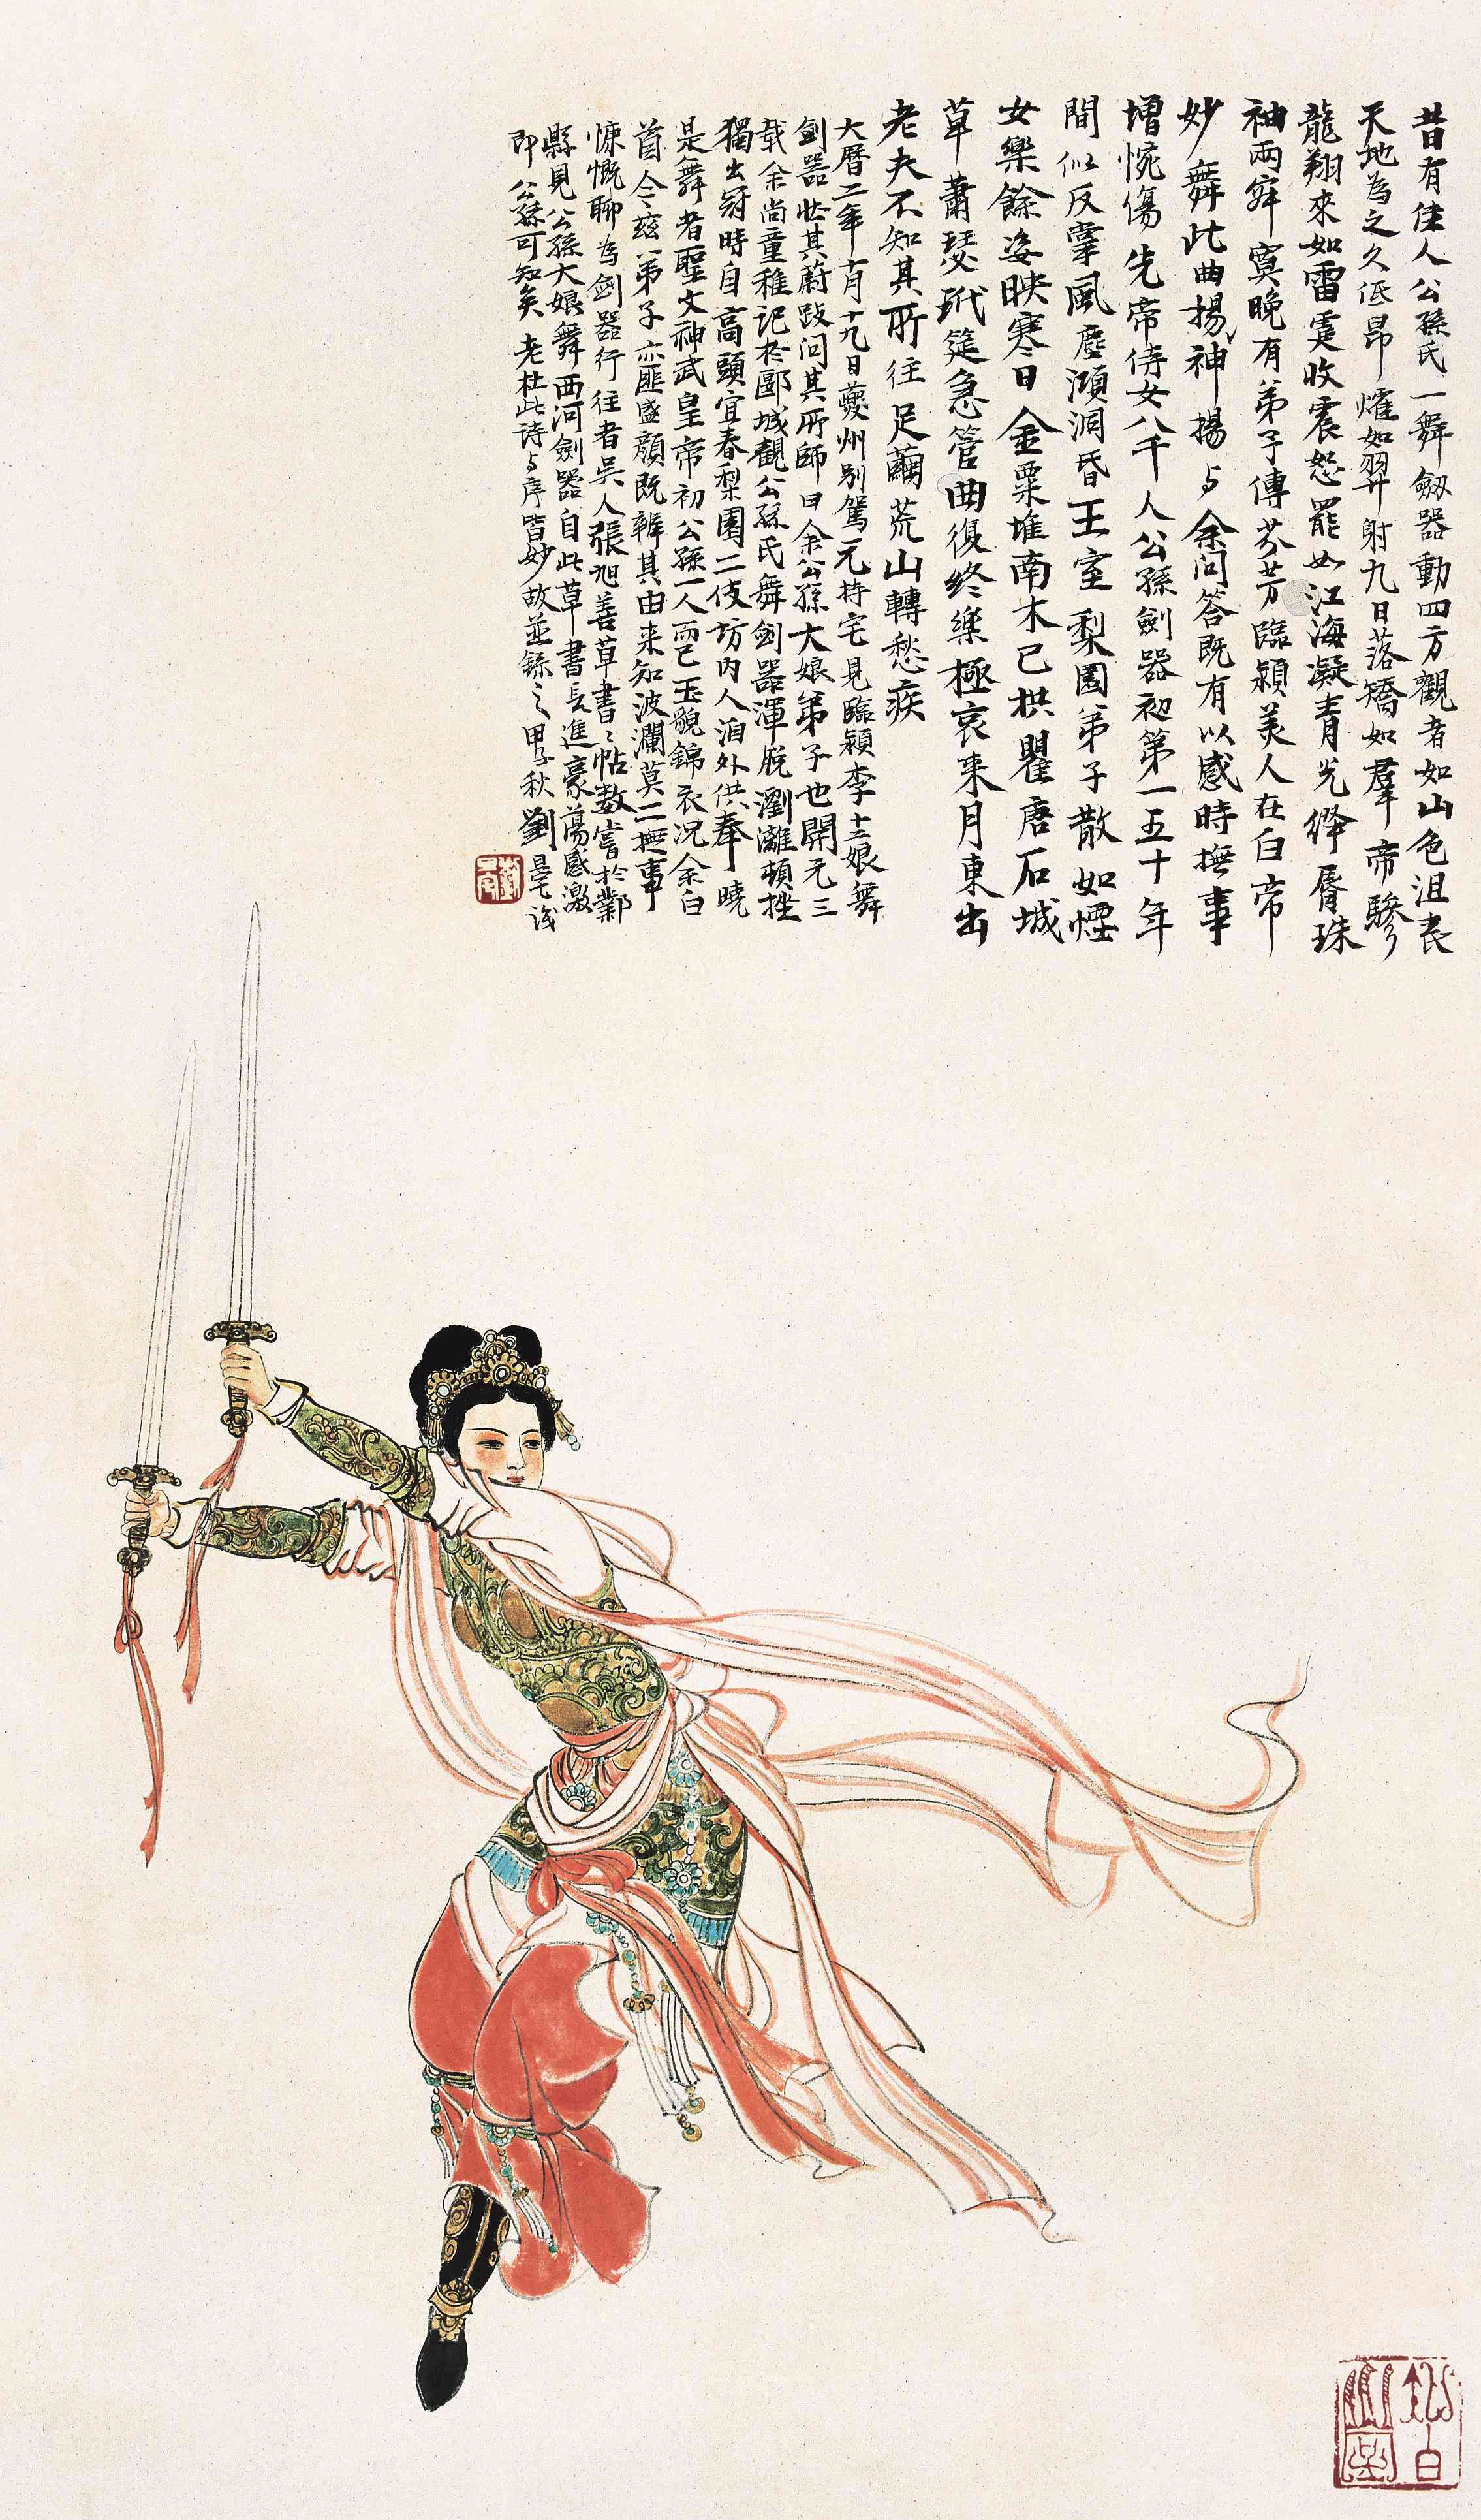 昔有佳人公孫氏一舞劔器動四方觀者如山色沮喪
天地為之久低昂燿如羿射九日落矯如羣帝驂
龍翔來如雷霆收震怒罷如江海凝青光絳脣珠
袖兩寂寞晚有弟子傳芬芳臨潁美人在白帝
妙舞此曲揚神揚与余問答既有以感時撫事
增惋傷先帝侍女八千人公孫劍器初第一五十年
間似反掌風塵澒洞昏王室梨園弟子散如煙
女樂餘姿映寒日金粟堆南木已拱瞿唐石城
草蕭瑟玳筵急管曲復終樂極哀来月東出
老夫不知其所往足繭荒山轉愁疾
大曆二年十月十九日夔州別駕元持宅見臨潁李十二娘舞
劍器壯其蔚跂問其所師曰余公孫大娘弟子也開元三
載余尚童稚記於郾城觀公孫氏舞劍器渾脫瀏灕頓挫
獨出冠時自高頭宜春梨園二伎坊內人洎外供奉曉
是舞者聖文神武皇帝初公孫一人而已玉貌錦衣況余白
首今茲弟子亦匪盛顏既辨其由来知波瀾莫二撫事
慷慨聊為劍器行往者吳人張旭善草書〻帖數嘗於鄴
縣見公孫大娘舞西河劍器自此草書長進豪蕩感激
即公孫可知矣老杜此诗与序皆妙故並錄之甲子秋劉旦宅識